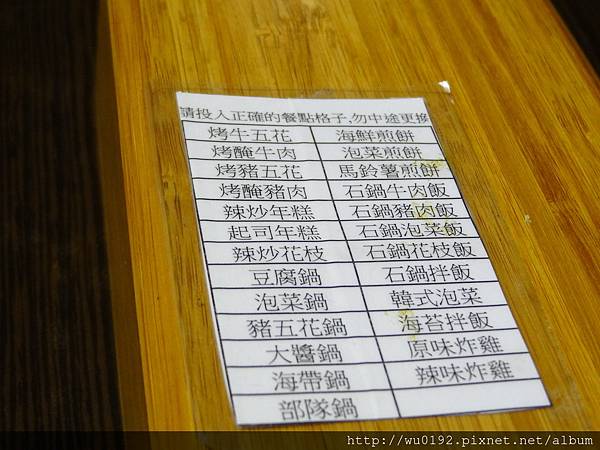 請投入正確的餐點格子,勿中途更換
烤牛五花 海鮮煎餅
烤醃牛肉 泡菜煎餅
烤豬五花 馬鈴薯煎餅
烤醃豬肉 石鍋牛肉飯
辣炒年糕 石鍋豬肉飯
起司年糕 石鍋泡菜飯
辣炒花枝 石鍋花枝飯
豆腐鍋 石鍋拌飯
泡菜鍋 韓式泡菜
豬五花鍋 海苔拌飯
大醬鍋 原味炸雞
海帶鍋 辣味炸雞
部隊鍋
http://wu0192.pixnet.net/album